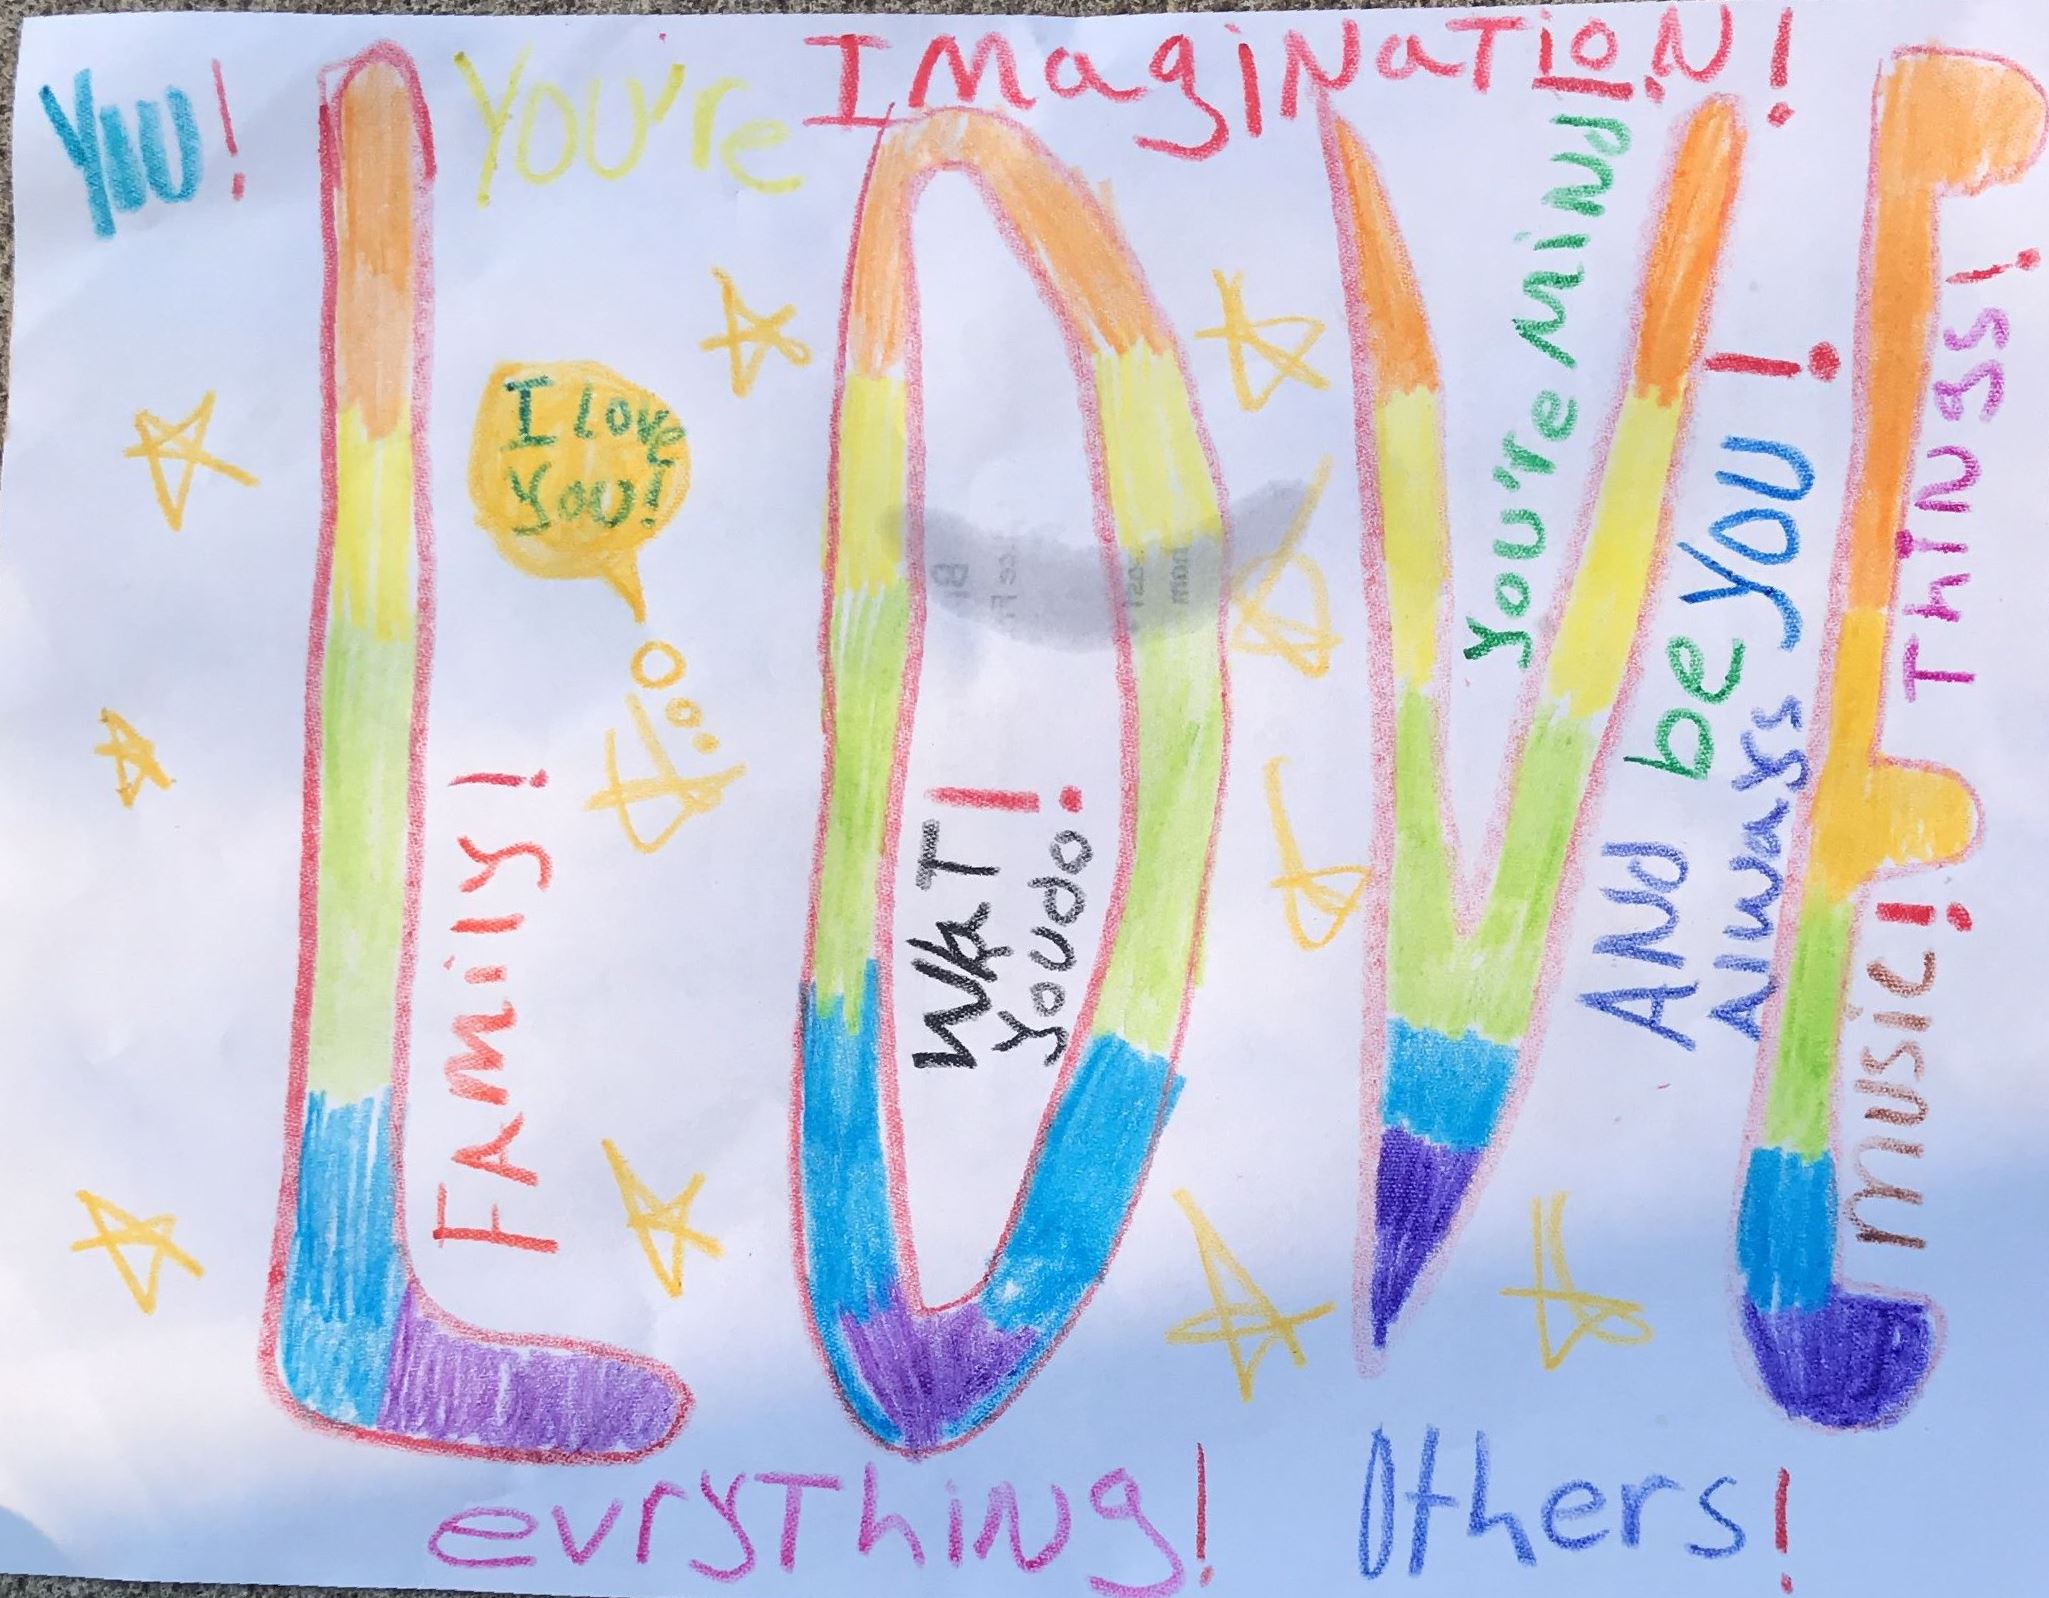 YOU!
You're IMagiNaTioN!
LOVE
I love
you!
FAMilY!
WAT!
youdo!
You're Mind!
ANd be YOU!
Always
THiNgs!
Music!
evryThiNg!
Others!